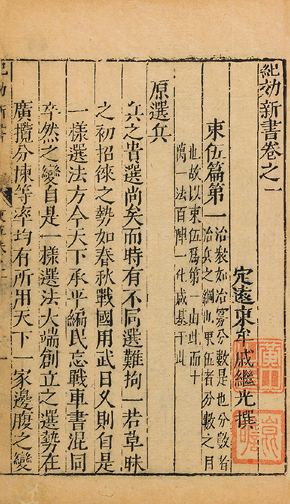 紀効新書卷之一
定遠東牟戚繼光撰
束伍篇第一
治衆如治寡分數是也分數者
治兵之綱也束伍者分數之目
也故以束伍爲第一由此而十
萬一法百陣一化咸基于此
原選兵
兵之貴選尚矣而時有不同選難拘一若草昧
之初招徠之勢如春秋戰國用武日久則自是
一樣選法方今天下承平編民忘戰車書混同
卒然之變自是一樣選法大端創立之選勢在
廣攬分揀等率均有所用天下一家邊腹之變